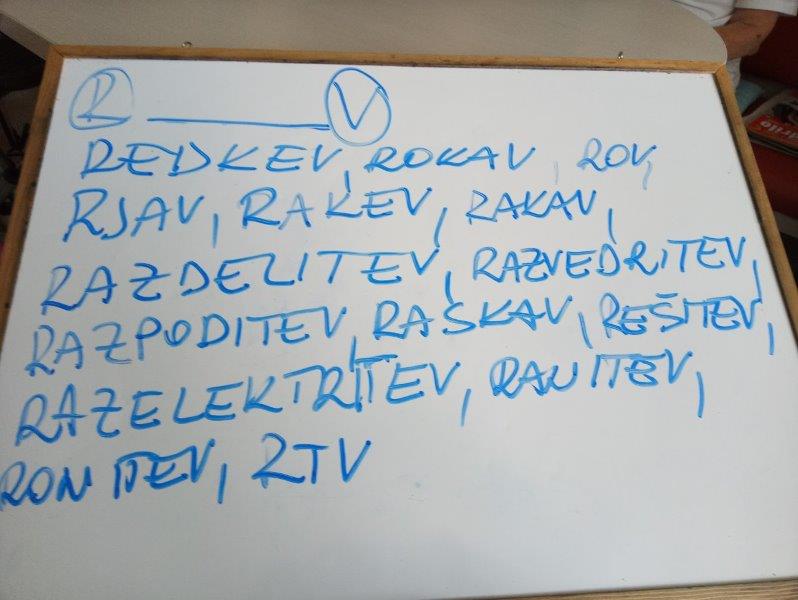 R ______ V
REDKEV, ROKAV, ROV,
RJAV, RAKEV, RAKAV,
RAZDELITEV, RAZVEDRITEV,
RAZPODITEV, RAŠKAV, REŠITEV,
RAZELEKTRITEV, RANITEV,
RONITEV, RTV